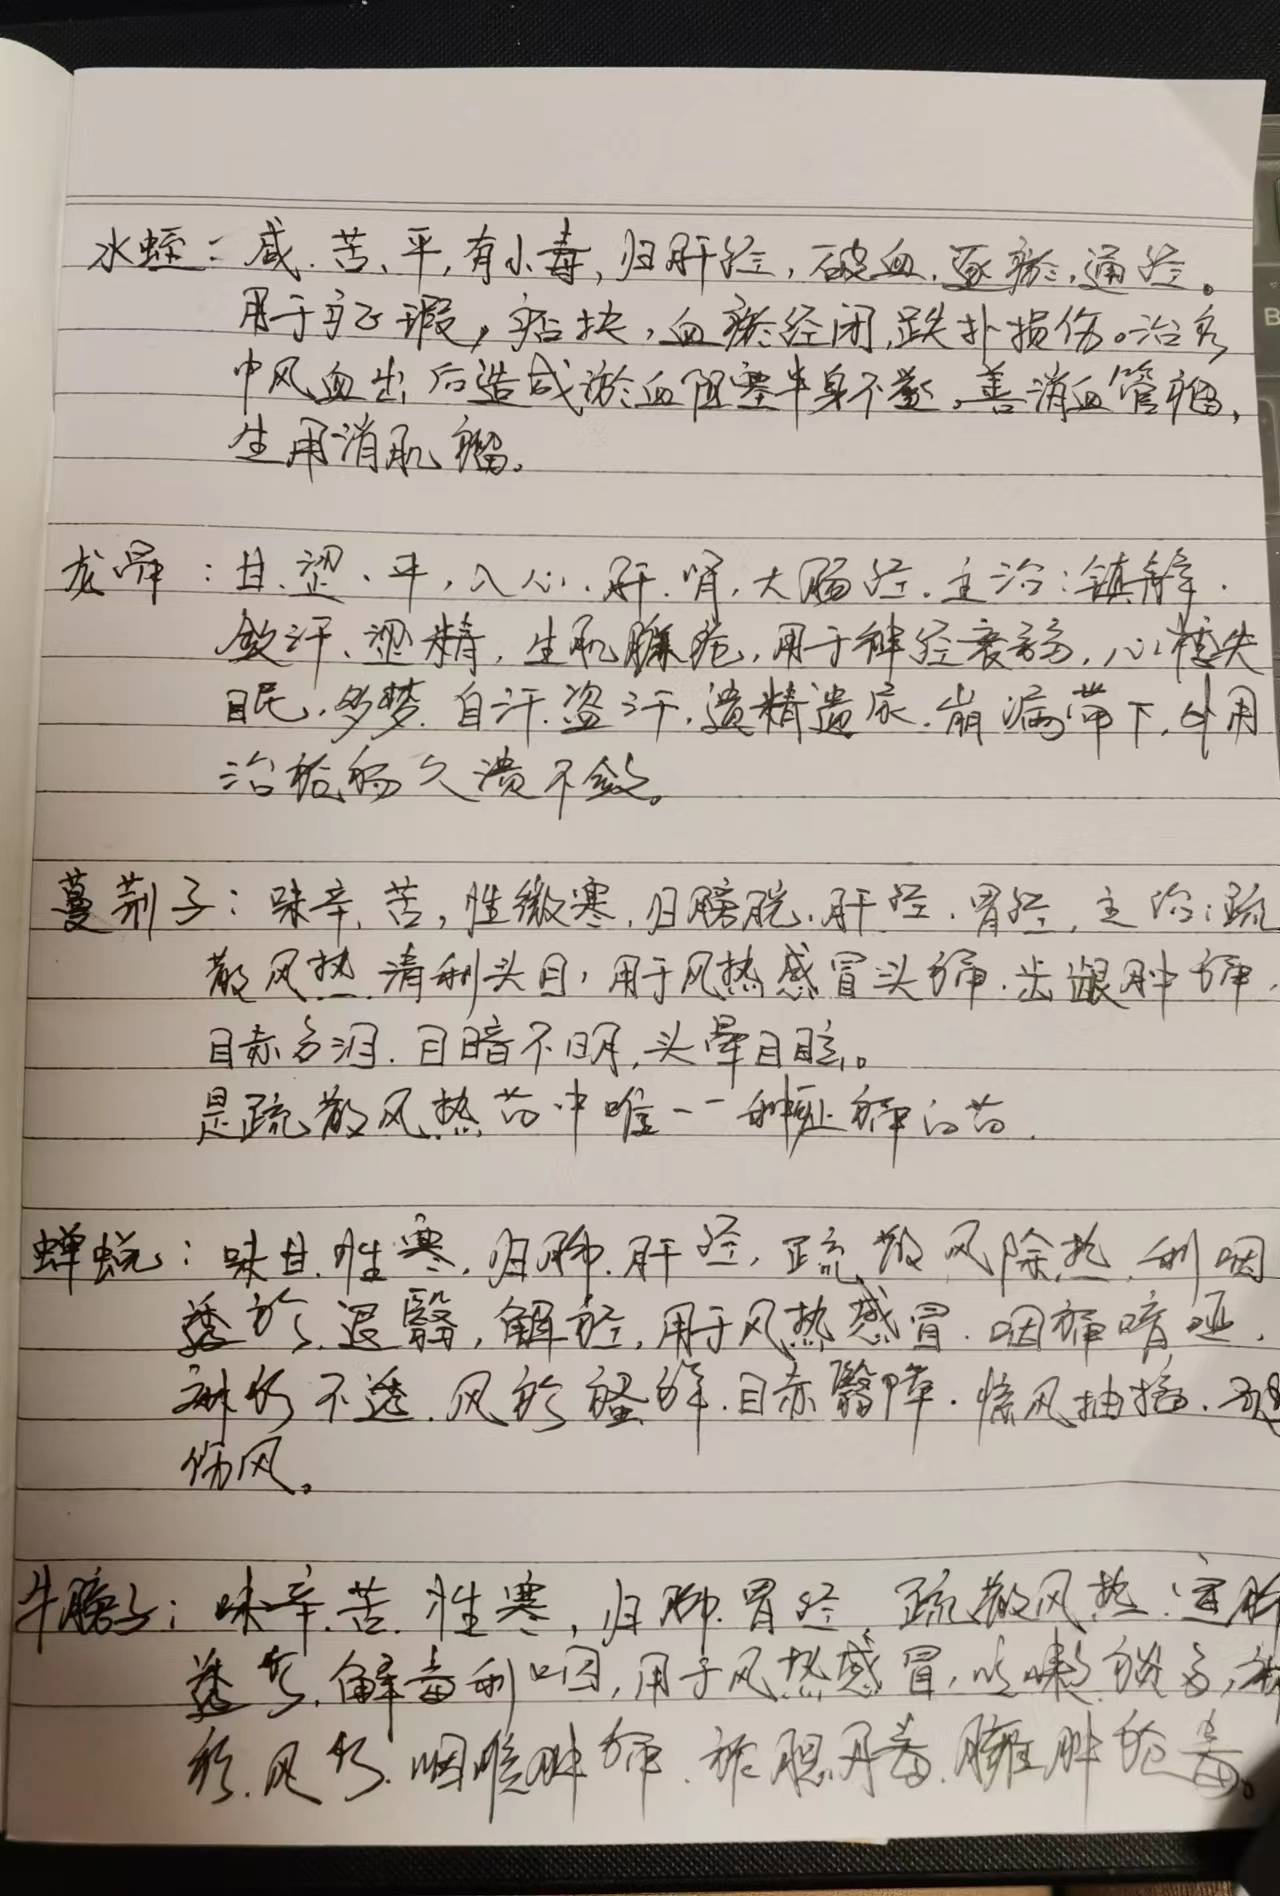 水蛭：咸、苦、平，有小毒，归肝经，破血、逐瘀，通经。
用于症瘕，痞块，血瘀经闭，跌扑损伤。治
中风血出后造成淤血阻塞半身不遂，善消血管瘤，
生用消肌瘤。
龙骨：甘、涩、平，入心、肝、肾，大肠经。主治：镇静、
敛汗、涩精，生肌，用于神经衰弱，心悸失
眠，多梦、自汗、盗汗，遗精遗尿、崩漏带下，外用
治疮疡久溃不敛。
蔓荆子：味辛、苦，性微寒，归膀胱、肝经、胃经，主治：疏
散风热、清利头目，用于风热感冒头痛、齿龈肿痛、
目赤多泪、目暗不明，头晕目眩。
是疏散风热药中唯一一种止痛的药.
蝉蜕：味甘、性寒，归肺、肝经，疏散风除热、利咽
透疹、退翳，解痉，用于风热感冒、咽痛喑哑，
麻疹不透、风疹瘙痒、目赤翳障、惊风抽搐、破
伤风。
牛膀子：味辛、苦、性寒，归肺、胃经、疏散风热、宣肺
透疹、解毒利咽，用于风热感冒，咳嗽痰多，麻
疹、风疹、咽喉肿痛、丹毒、肿疮毒。